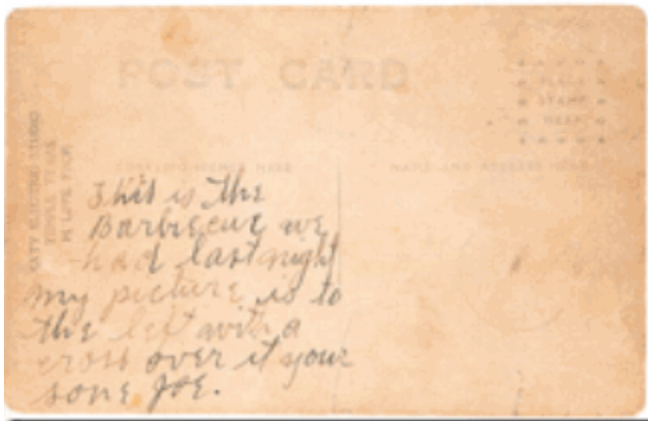 POST CARD
PLACE
STAMP
HERE
CORRESPONDENCE HERE
NAME AND ADDRESS HERE
KATY ELECTRIC STUDIO
TEMPLE TEXAS
This is the
Barbecue we
had last night
my picture is to
the left with a
cross over it your
sone Joe.